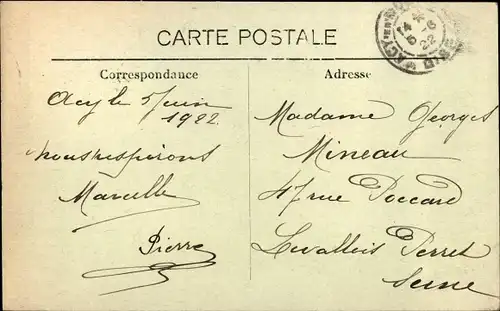 CARTE POSTALE
Correspondance
Acy le 5 Juin
1922
nous espérons
Marcelle
Pierre
Adresse
Madame Georges
Mineau
47 rue Poccard
Levallois Perret
Seine
14 *
5 - 6
22